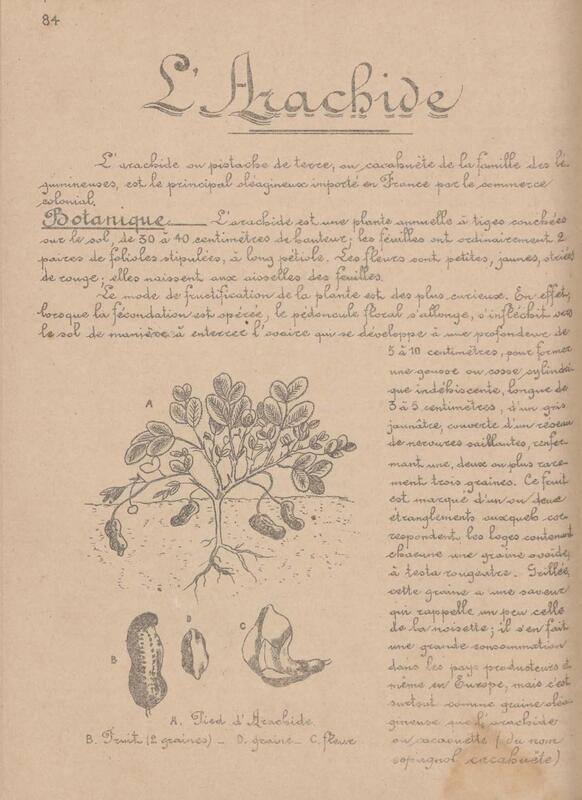 84
L'Arachide
L'arachide ou pistache de terre, ou cacahuète de la famille des lé
gumineuses, est le principal oléagineux importé en France par le commerce
colonial.
Botanique. L'arachide est une plante annuelle à tiges couchées
sur le sol, de 30 à 40 centimètres de hauteur; les feuilles ont ordinairement 2
paires de folioles stipulées, à long pétiole. Les fleurs sont petites, jaunes, striées
de rouge; elles naissent aux aisselles des feuilles.
Le mode de fructification de la plante est des plus curieux. En effet,
lorsque la fécondation est opérée, le pédoncule floral s'allonge, s'infléchit vers
le sol de manière à enterrer l'ovaire qui se développe à une profondeur de
5 à 10 centimètres, pour former
une gousse ou cosse cylindri
que indéhiscente, longue de
3 à 5 centimètres, d'un gris
jaunâtre, couverte d'un réseau
de nervures saillantes, renfer
mant une, deux ou plus rare
ment trois graines. Ce fruit
est marqué d'un ou deux
étranglements auxquels cor
respondent les loges contenant
chacune une graine ovoïde,
à testa rougeatre. Grillée,
cette graine a une saveur
qui rappelle un peu celle
de la noisette; il s'en fait
une grande consommation
dans les pays producteurs et
même en Europe, mais c'est
surtout comme graine oléa
gineuse que l'arachide
ou cacaouette (du nom
espagnol cacahuète)
A
B
D
C
A. Pied d'Arachide.
B. Fruit (2 graines) _ D. graine _ C. fleur